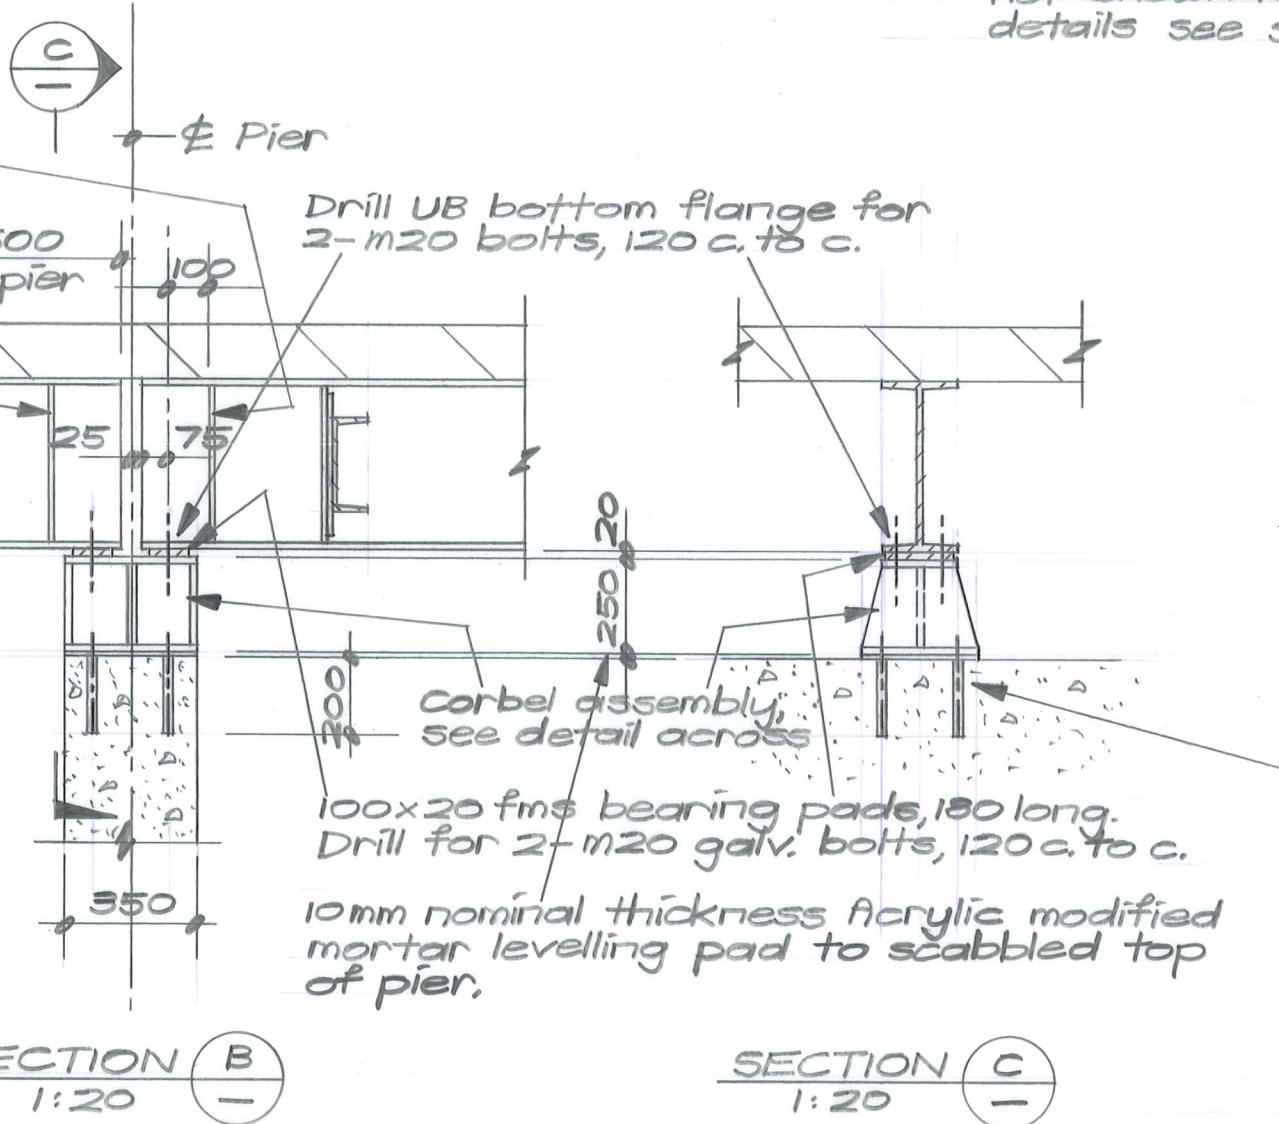 details see
C
₵ Pier
Drill UB bottom flange for
2-M20 bolts, 120 c. to c.
pier
100
25
75
20
250
200
Corbel assembly,
see detail across
100x20 fms bearing pads, 180 long.
Drill for 2-M20 galv. bolts, 120 c. to c.
350
10mm nominal thickness Acrylic modified
mortar levelling pad to scabbled top
of pier.
ECTION B
1:20
SECTION C
1:20